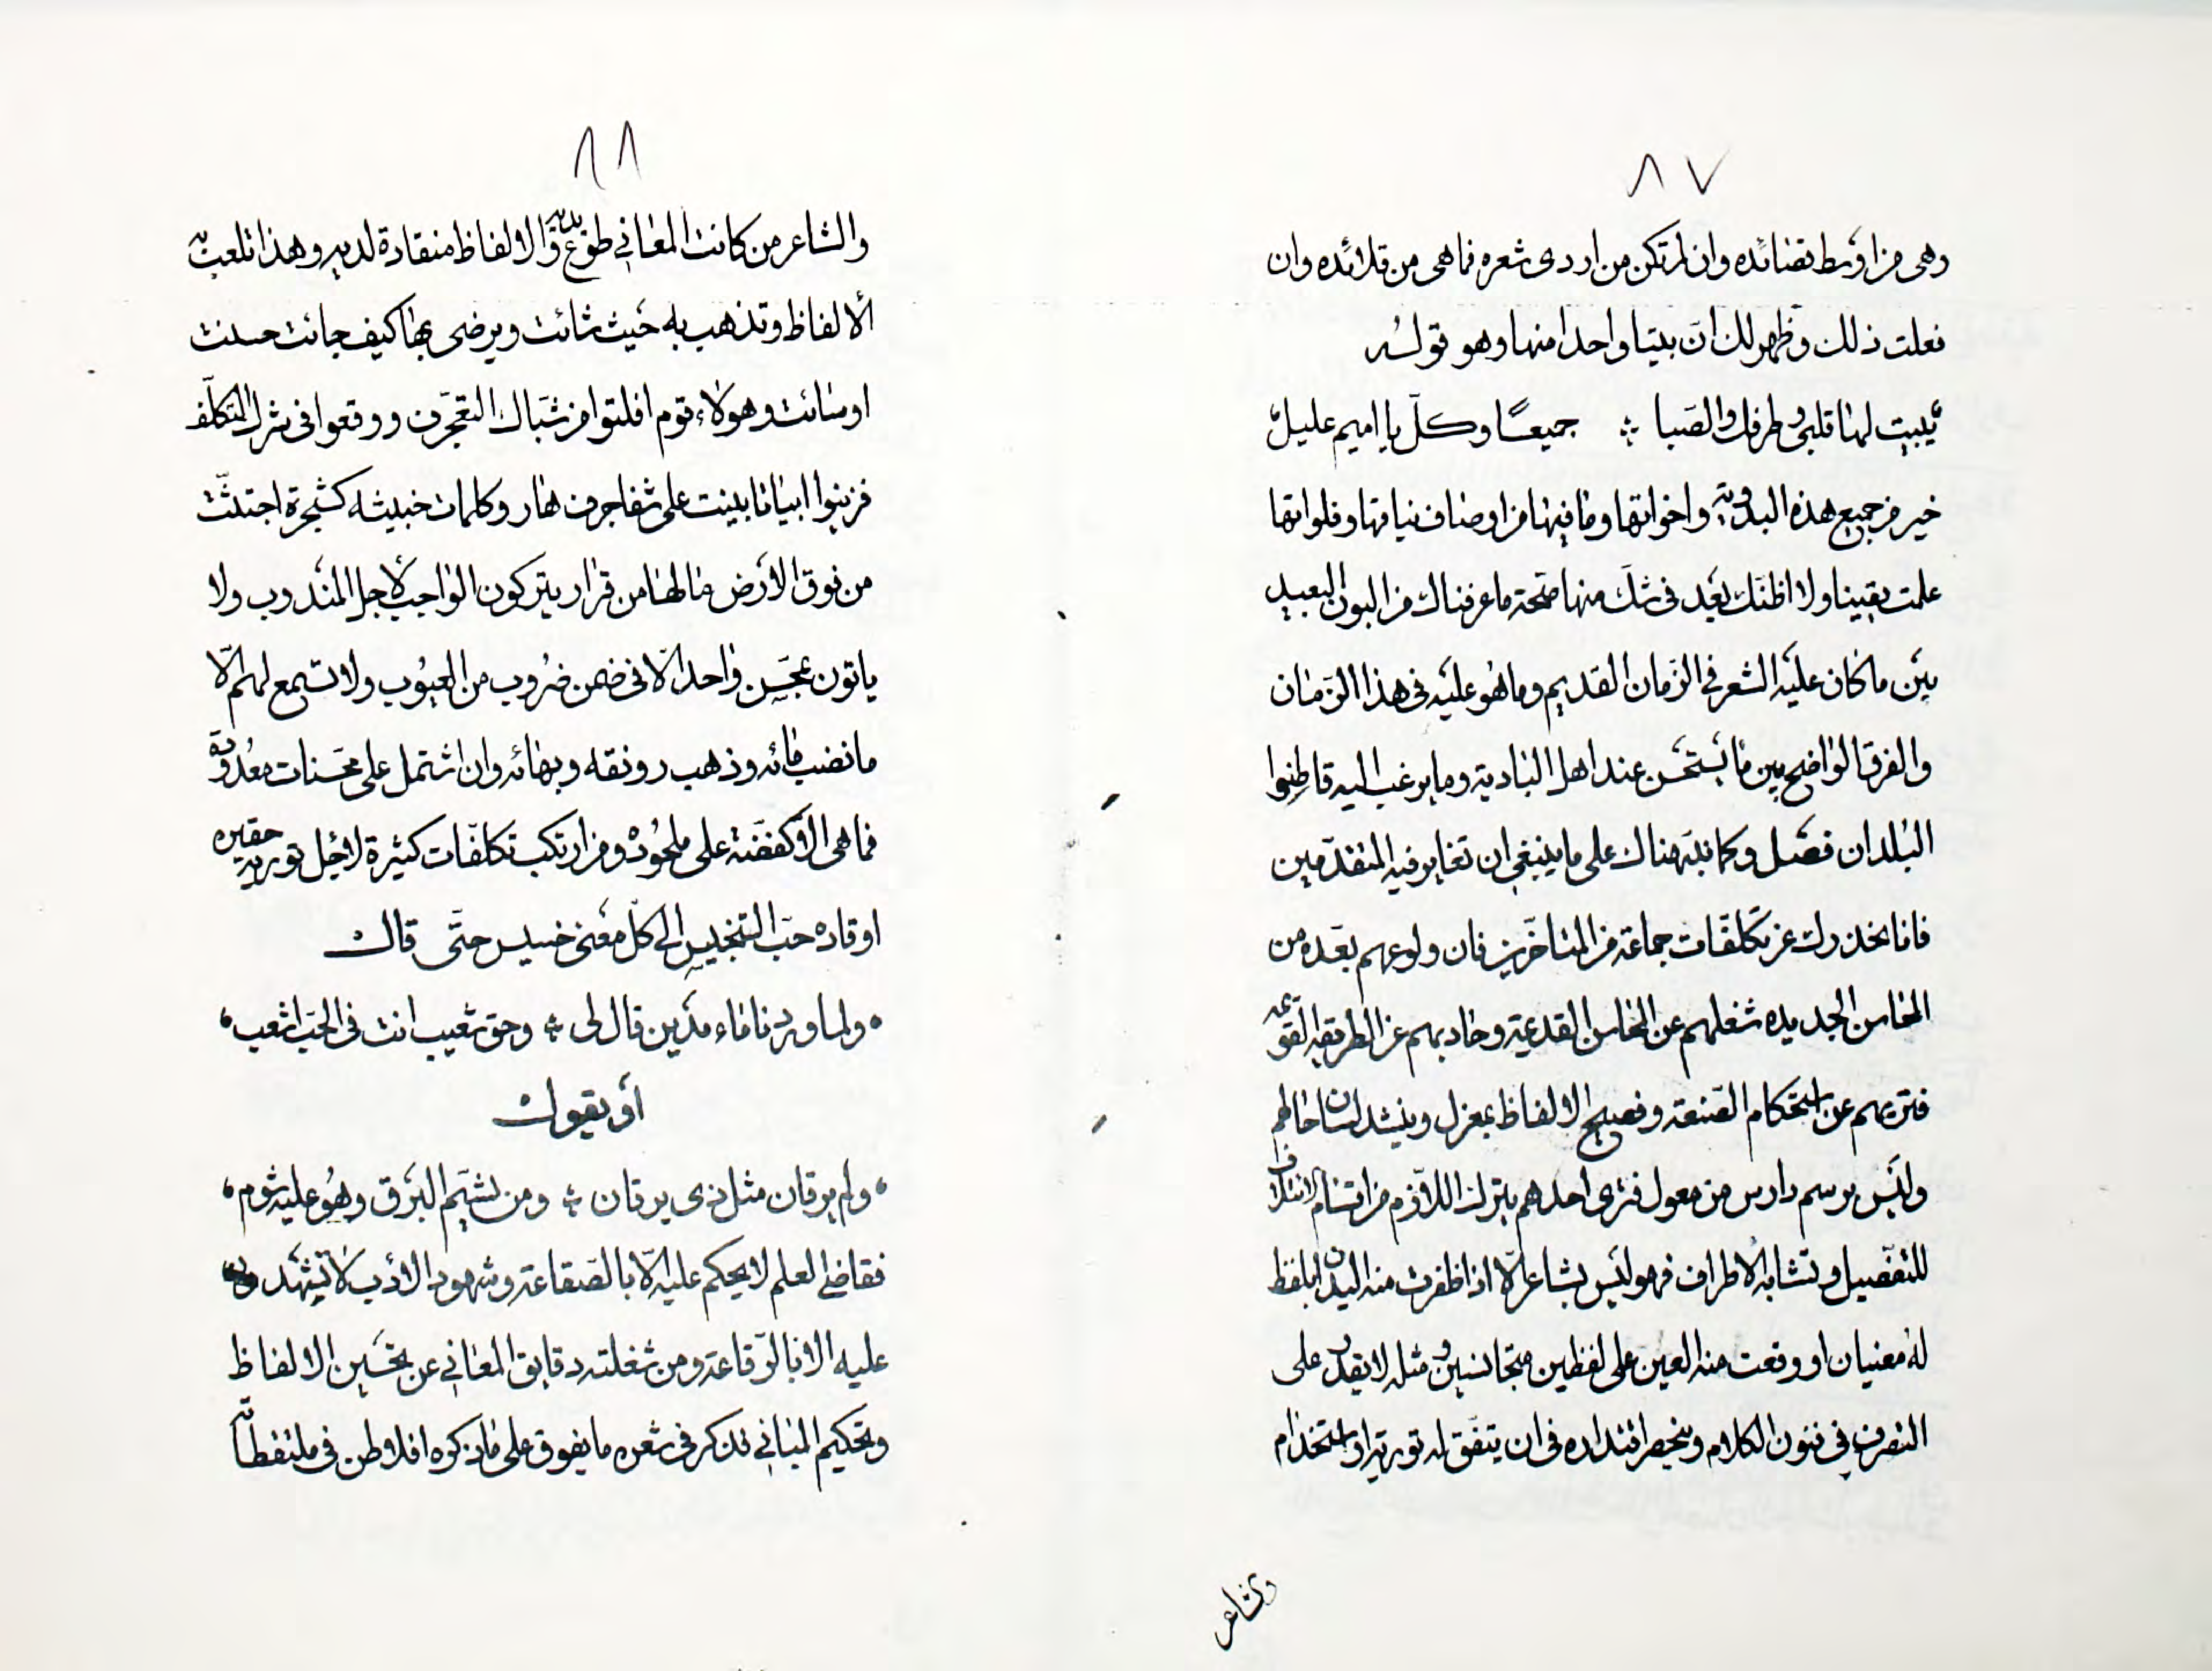 ٨٧
وهى من اوسط قصائده وان لم تكن من اردى شعره فما هى من قلائده وان
فعلت ذلك وظهر لك ان بيتا واحدا منها وهو قوله
يبيت لها قلبي وطرفك والصبا ؞ جميعًا وكلّ يا اميم عليل
خير من جميع هذه البدوية واخواتها وما فيها من اوصاف نياقها وفلواتها
علمت يقينا ولا اظنك بعد فى شك منها صحة ما عرفناك من البون البعيد
بين ما كان عليه الشعر في الزمان القديم وما هو عليه فى هذا الزمان
والفرق الواضح بين ما يستحسن عند اهل البادية وما يرغب اليه قاطنوا
البلدان فصل وكما ننبهناك على ما ينبغي ان تغاير فيه المتقدّمين
فانا نحذرك عن تكلفات جماعة من المتاخرين فان ولوعهم بعده من
المحاسن الجديده شغلهم عن المحاسن القديمة وحاد بهم عن الطريقة القويمة
فتريهم عن استحكام الصنعة وفصيح الالفاظ بمعزل وينشد لسان حالهم
وليس برسم دارس من معول فترى احدهم يترك اللازم من اقسام الائتلاف
للتفصيل وتشابه الاطراف فهو ليس بشاعر الّا اذا ظفرت منه اليدان بلفظ
له معنيان او وقعت منه العين على لفظين متجانسين ومثله لا يقدر على
التصرف فى فنون الكلام وينحصر اقتداره فى ان يتفق له تورية او استخدام
والشاعر
٨٨
والشاعر من كانت المعاني طوع يديه والالفاظ منقادة لديه وهذا تلعب به
الالفاظ وتذهب به حيث شائت ويرضى بها كيف جائت حسنت
او سائت وهولاء قوم افلتوا من شباك التعجرف ووقعوا فى شرك التكلّف
فزينوا ابياتا بنيت على شفا جرف هار وكلمات خبيثه كشجرة اجتثّت
من فوق الارض مالها من قرار يتركون الواجب لاجل المندوب ولا
ياتون بمحسن واحد الّا فى ضمن ضروب من العيوب ولا تسمع لهم الّا
ما نضب مائه وذهب رونقه وبهائه وان اشتمل على محسنات معدودة
فما هى الّا كفضة على ملحود ومن ارتكب تكلفات كثيرة لاجل تورية حقيره
او قاده حب التجنيس الى كل معنى خسيس حتّى قال
ولما وردنا ماء مدين قال لى ؞ وحق شعيب انت فى الحب اشعب
او يقول
ولم يرقان مثل ذى يرقان ؞ ومن يشيم البرق وهو عليه شوم
فقاضى العلم لا يحكم عليه الّا بالصقاعة وشهود الادب لا تشهد
عليه الا بالرقاعة ومن شغلته دقايق المعاني عن تحسين الالفاظ
وتحكيم المباني فذكر فى شعره ما يفوق على ما ذكره افلاطن فى ملتقطاته